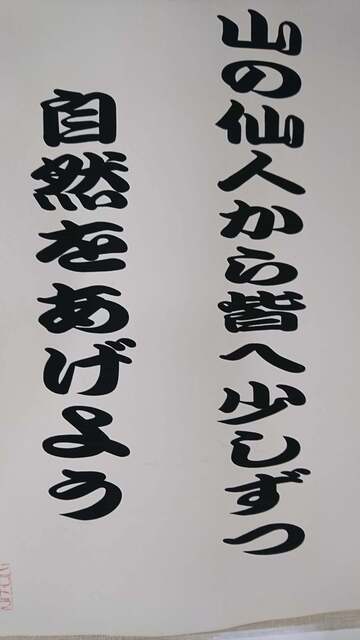 山の仙人から皆へ少しずつ
自然をあげよう